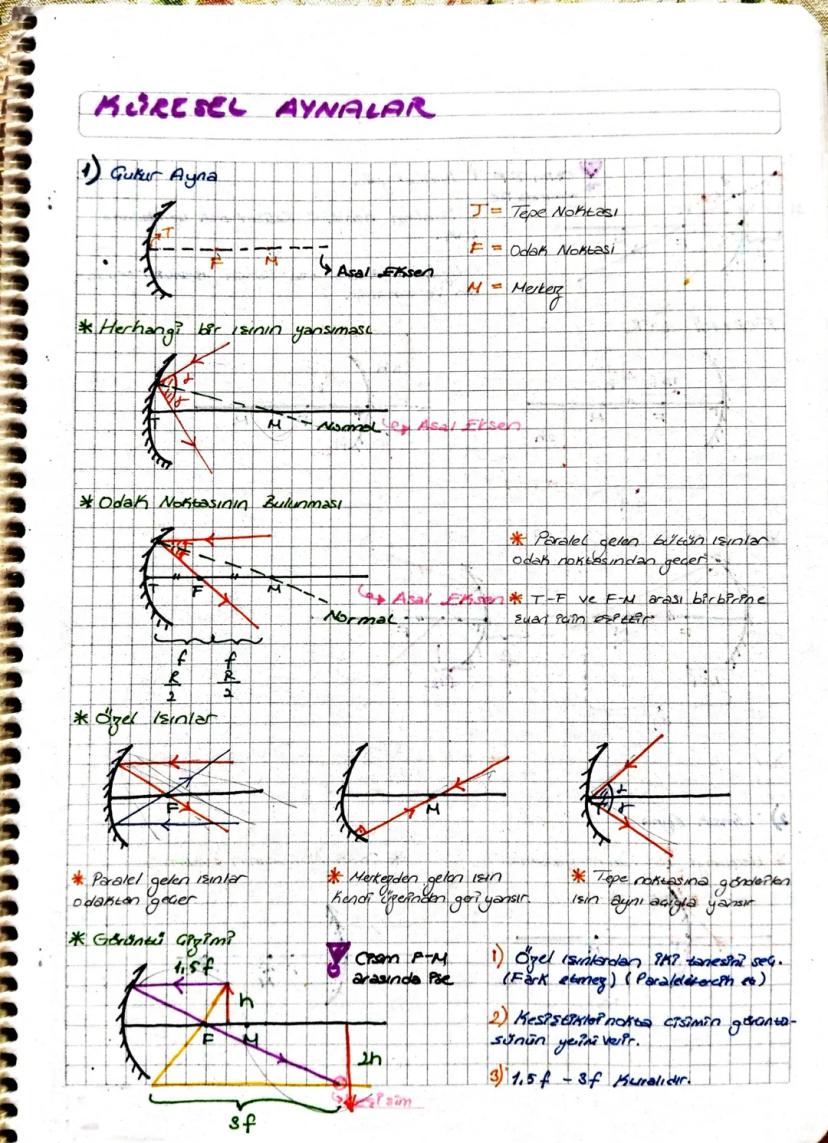 KÜRESEL AYNALAR
1) Çukur Ayna
T
F
M
Asal Eksen
T = Tepe Noktası
F = Odak Noktası
M = Merkez
* Herhangi bir ışının yansıması
α
α
T
M
Normal
Asal Eksen
* Odak Noktasının Bulunması
T
F
M
Asal Eksen
Normal
f
f
R/2
R/2
* Paralel gelen bütün ışınlar
odak noktasından geçer.
* T-F ve F-M arası birbirine
için eşittir
* Özel Işınlar
F
M
T
α
α
* Paralel gelen ışınlar
odaktan geçer
* Merkezden gelen ışın
kendi üzerinden geri yansır.
* Tepe noktasına gönderilen
ışın aynı açıyla yansır
* Görüntü Çizimi
1,5f
h
F
M
2h
3f
Cisim F-M
arasında ise
1) Özel ışınlardan iki tanesini seç.
(Fark etmez) (Paraleli tercih et)
2) Kesiştikleri nokta cisimin görüntü-
sünün yerini verir.
3) 1,5f - 3f Kuralıdır.